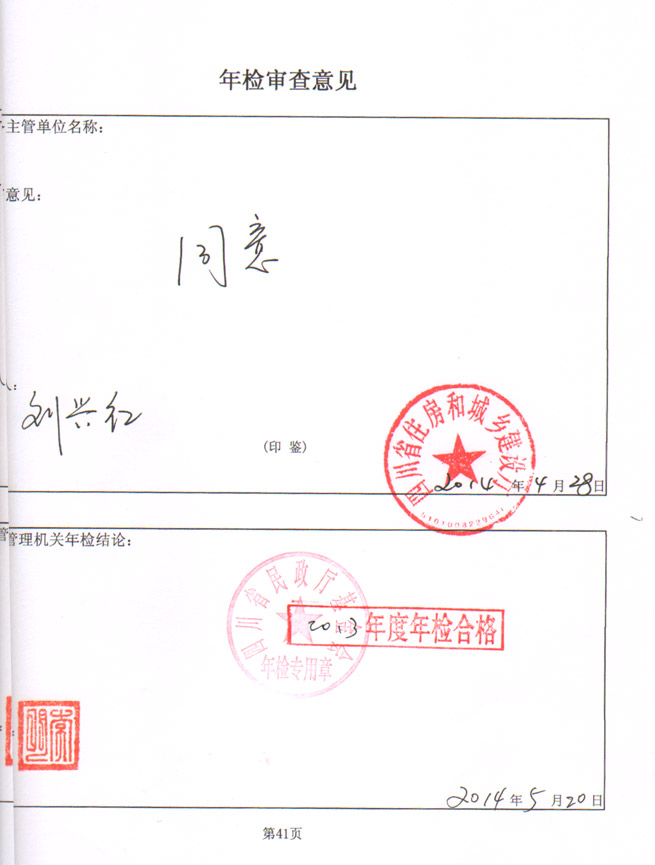 年检审查意见
主管单位名称：
意见：
同意
刘兴红
（印 鉴）
四川省住房和城乡建设厅
2014年4月28日
管理机关年检结论：
四川省民政厅基金会
年检专用章
2013年度年检合格
2014年5月20日
第41页